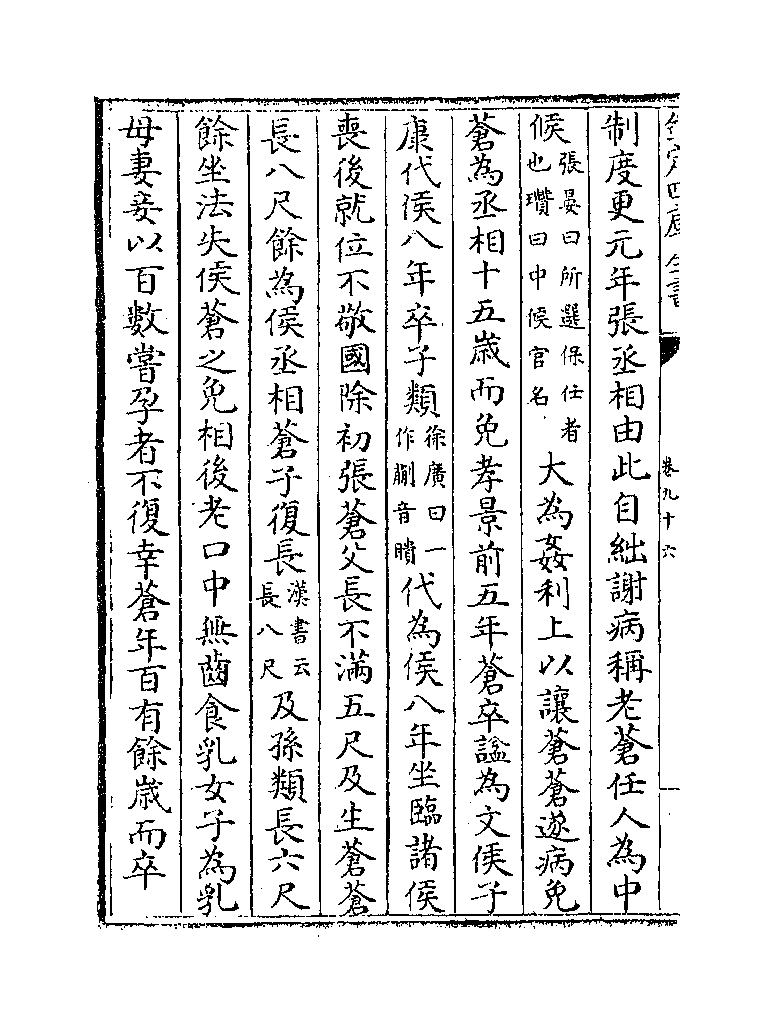 欽定四庫全書
卷九十六
制度更元年張丞相由此自絀謝病稱老蒼任人為中
候張晏曰所選保任者也瓚曰中候官名大為姦利上以讓蒼蒼遂病免
蒼為丞相十五歲而免孝景前五年蒼卒諡為文侯子
康代侯八年卒子類徐廣曰一作䫌音聵代為侯八年坐臨諸侯
喪後就位不敬國除初張蒼父長不滿五尺及生蒼蒼
長八尺餘為侯丞相蒼子復長漢書云長八尺及孫類長六尺
餘坐法失侯蒼之免相後老口中無齒食乳女子為乳
母妻妾以百數嘗孕者不復幸蒼年百有餘歲而卒